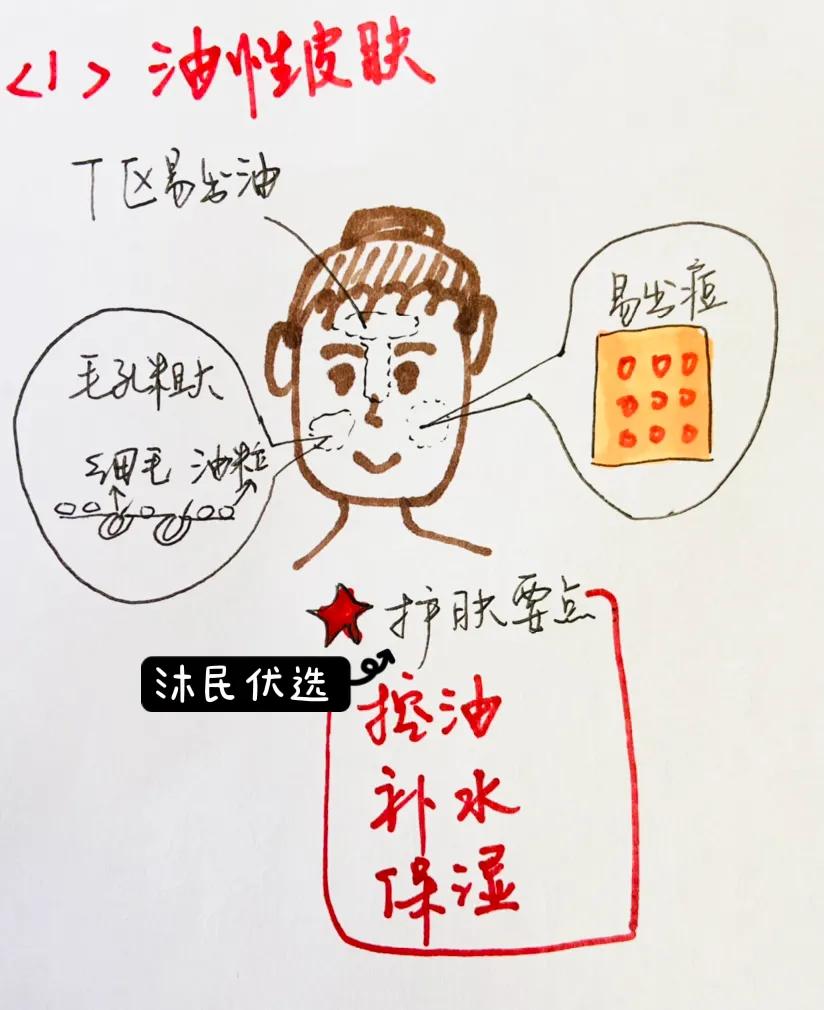 <1> 油性皮肤
T区易出油
易出痘
毛孔粗大
细毛 油粒
护肤要点
沐民优选
控油
补水
保湿